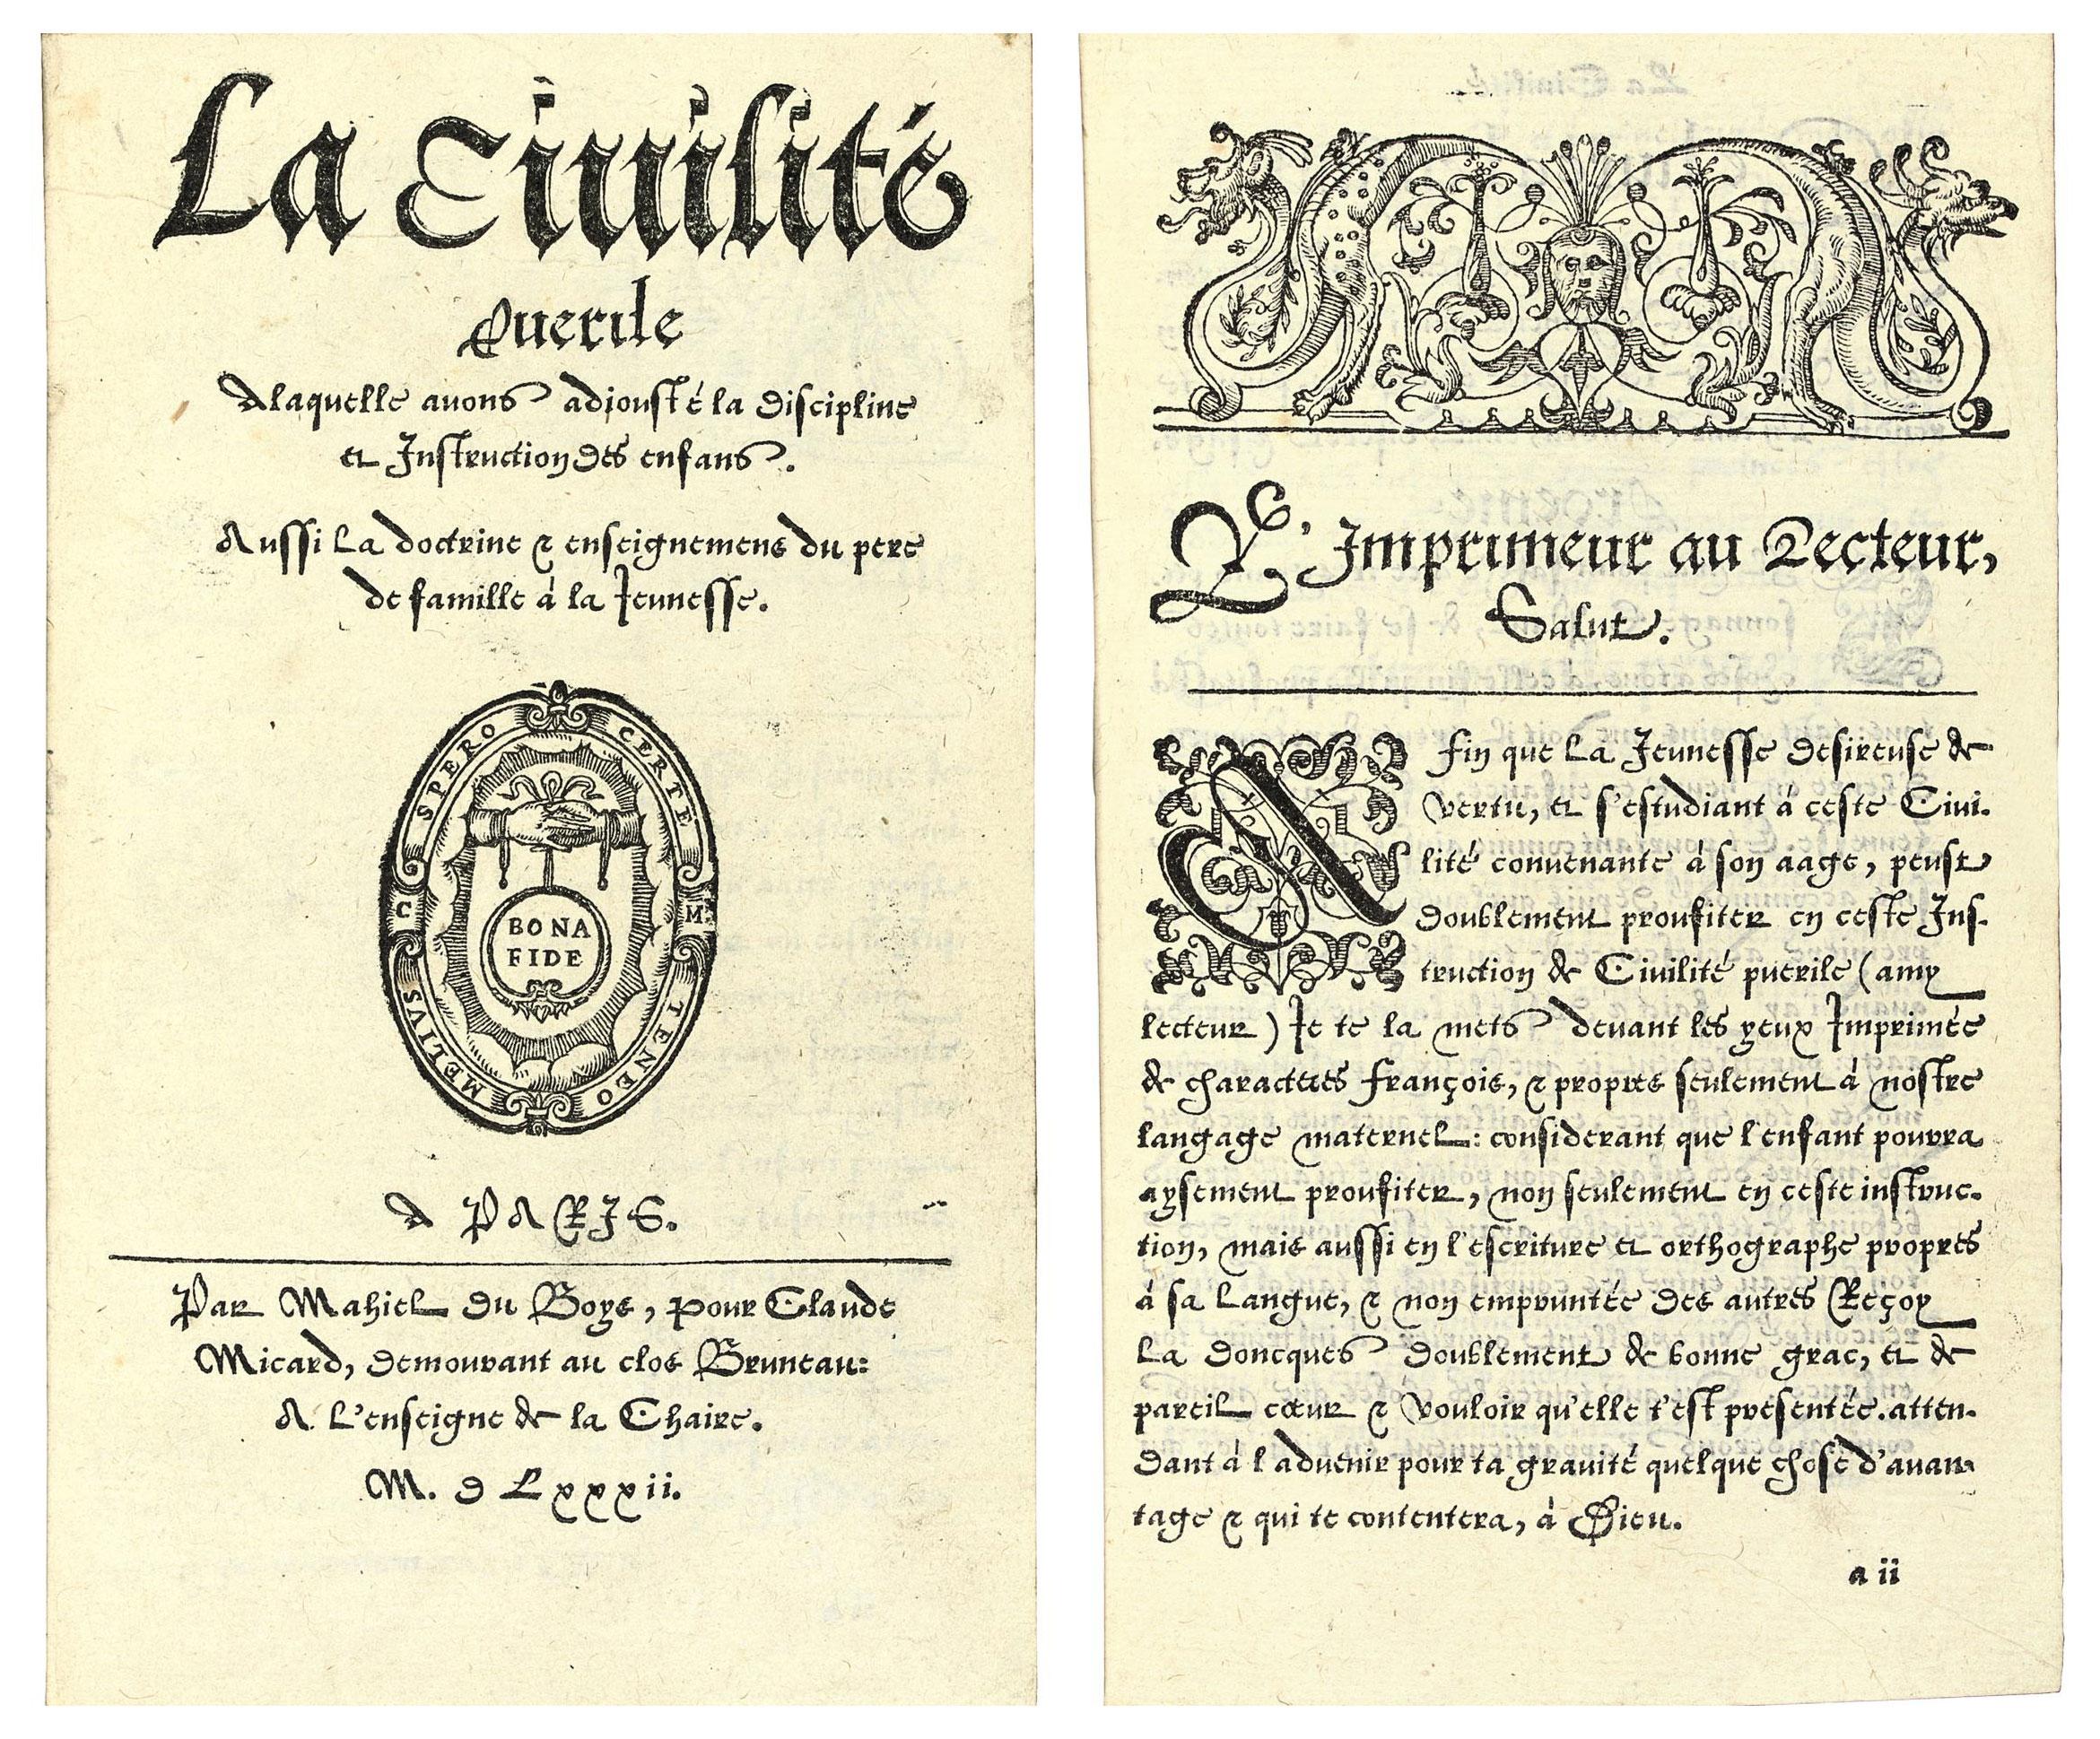 La Ciuilité
Puerile
A laquelle auons adiousté la discipline
et Instruction des enfans.
Aussi La doctrine & enseignemens du pere
de famille à la Ieunesse.
SPERO CERTE
TENEO MELIVS
C M.
BONA
FIDE
A PARIS.
Par Mahiel du Boys, pour Claude
Micard, demourant au clos Bruneau:
A L'enseigne de la Chaire.
M. D Lxxxii.
L'Imprimeur au Lecteur,
Salut.
Afin que La Ieunesse desireuse de
vertu, et s'estudiant à ceste Ciui-
lité conuenante à son aage, peust
doublement proufiter en ceste Ins-
truction de Ciuilité puerile (amy
lecteur) Ie te la mets deuant les yeux Imprimée
de characteres françois, & propres seulement à nostre
langage maternel: considerant que l'enfant pourra
aysement proufiter, non seulement en ceste instruc-
tion, mais aussi en l'escriture et orthographe propres
à sa Langue, & non empruntée des autres Reçoy
La doncques doublement de bonne grac, et de
pareil cœur & vouloir qu'elle t'est presentée. atten-
dant à l'aduenir pour ta grauité quelque chose d'auan-
tage & qui te contentera, à Dieu.
a ii